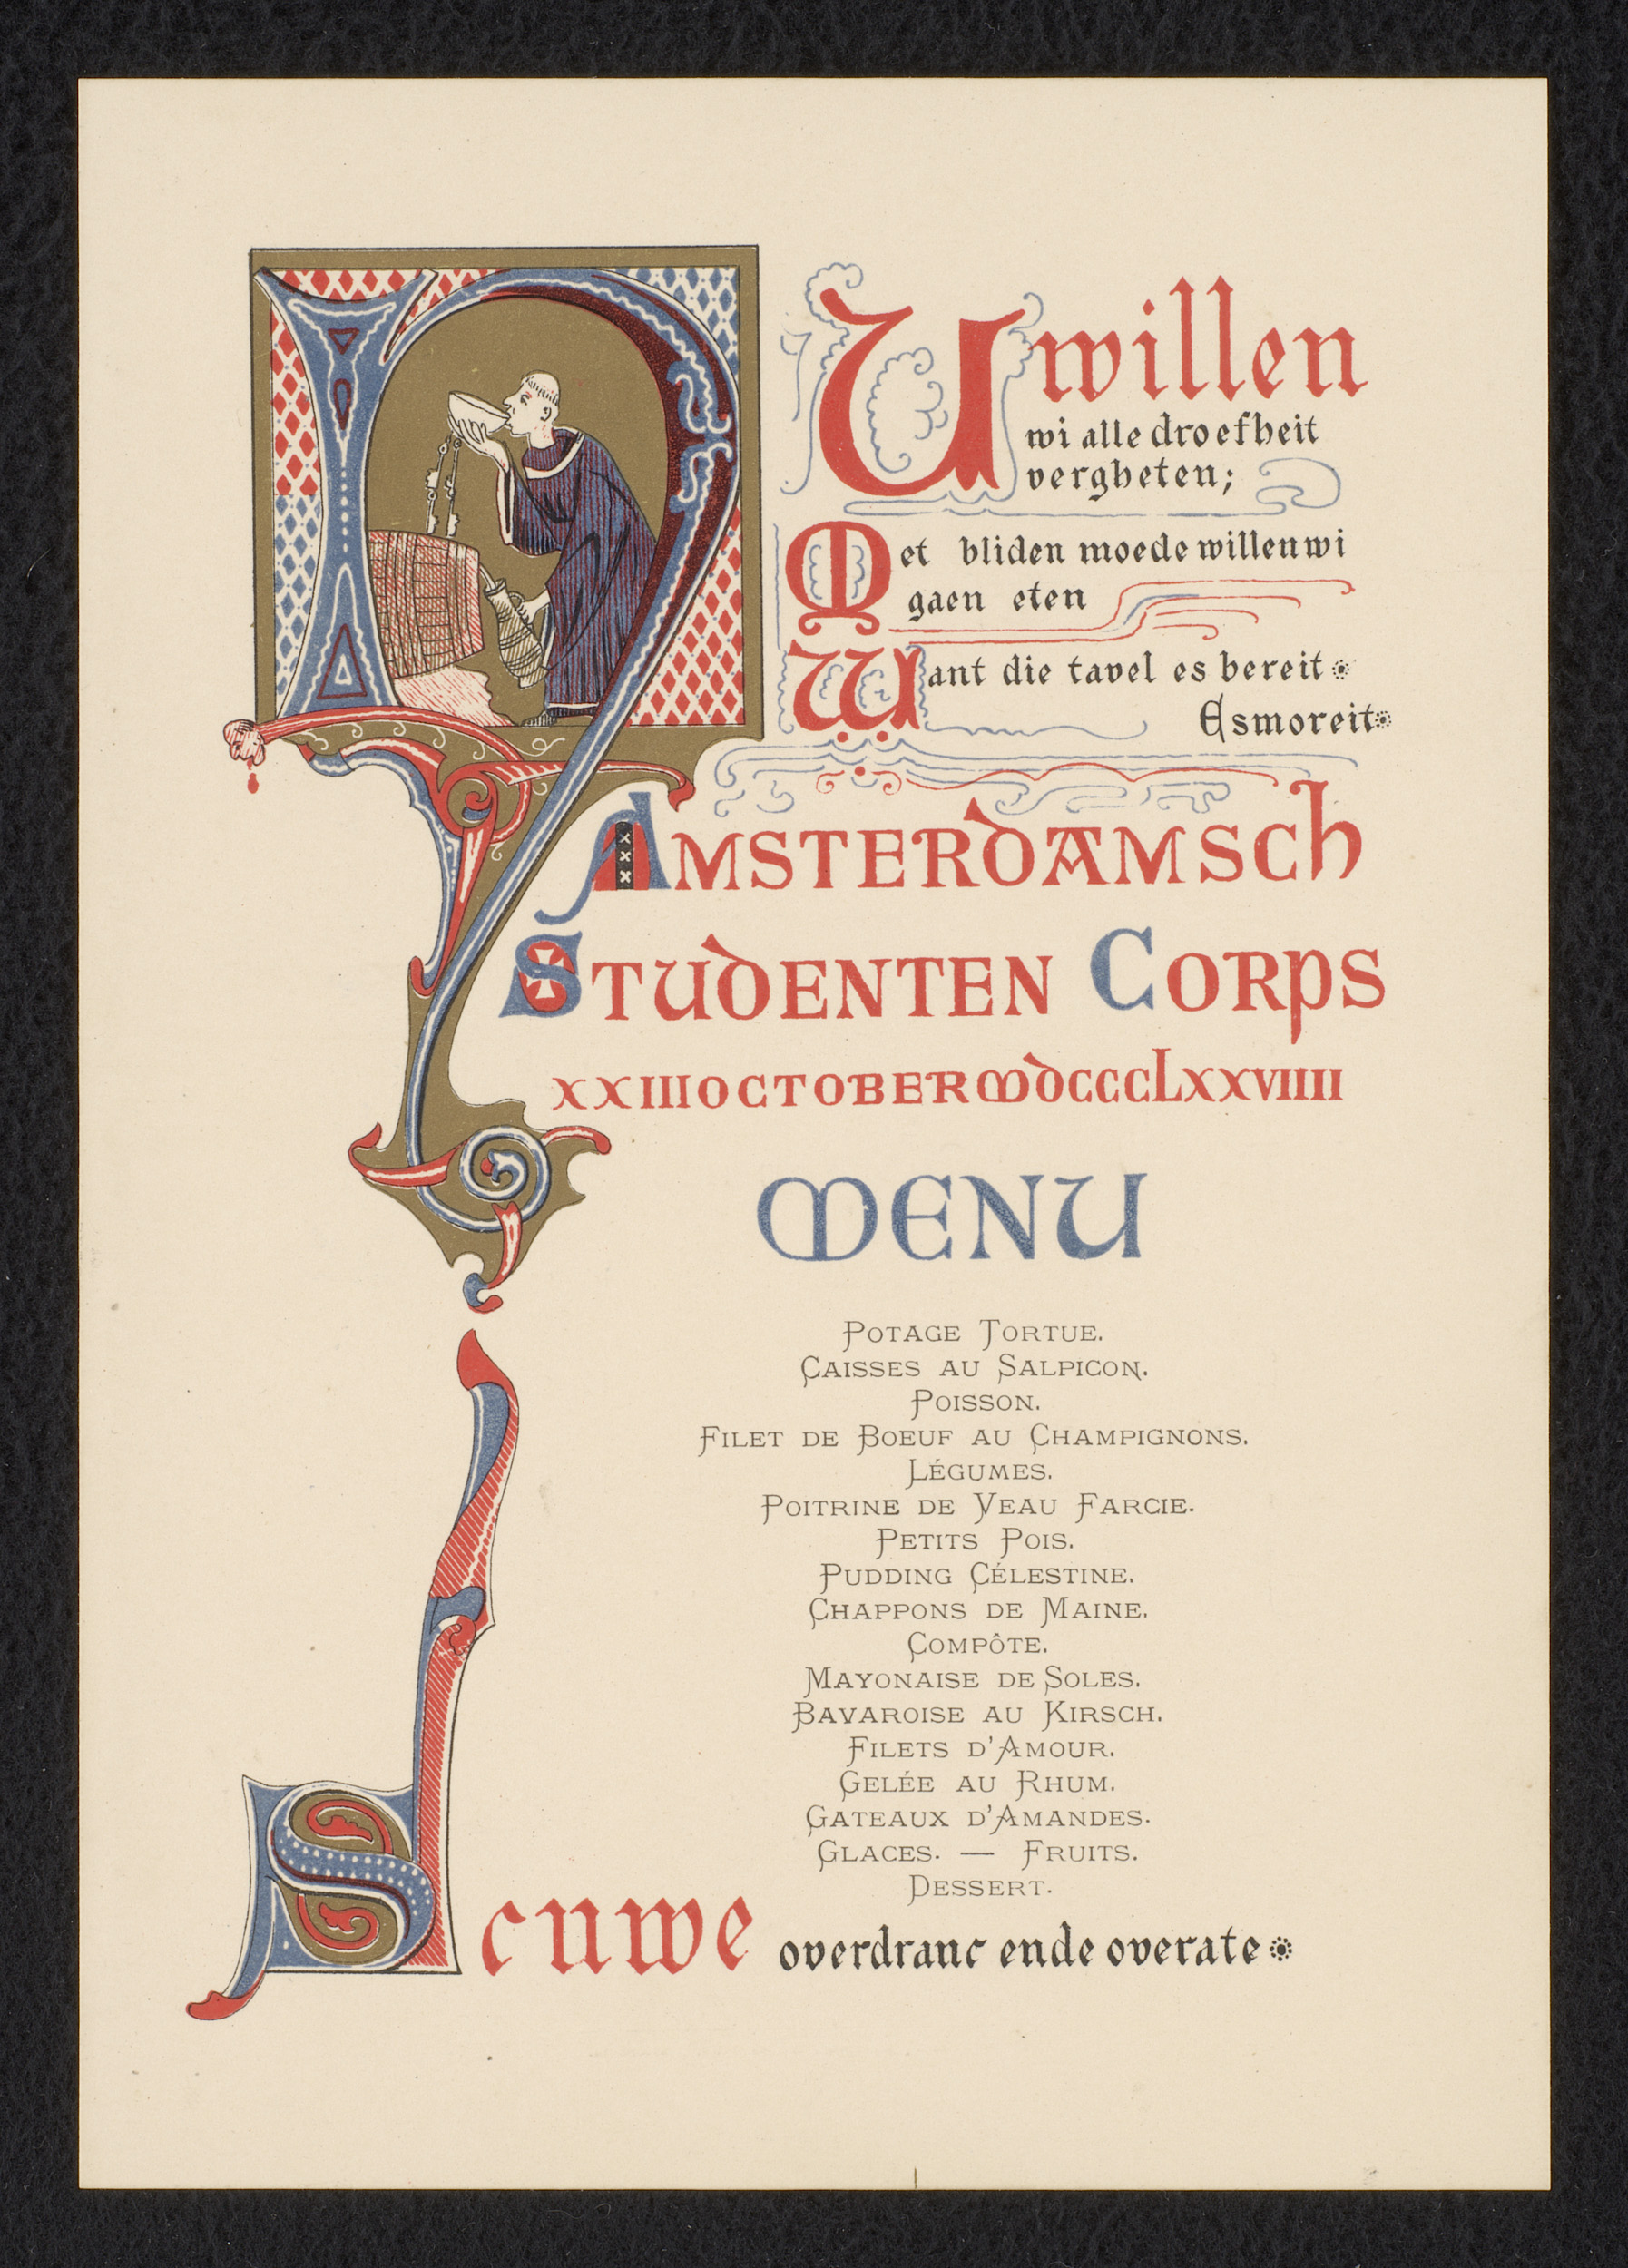 NU willen
wi alle droefheit
vergheten;
Met bliden moede willen wi
gaen eten
Want die tavel es bereit
Esmoreit
AMSTERDAMSCH
STUDENTEN CORPS
XXIII OCTOBER MDCCCLXXVIIII
MENU
POTAGE TORTUE.
CAISSES AU SALPICON.
POISSON.
FILET DE BOEUF AU CHAMPIGNONS.
LÉGUMES.
POITRINE DE VEAU FARCIE.
PETITS POIS.
PUDDING CÉLESTINE.
CHAPPONS DE MAINE.
COMPÔTE.
MAYONAISE DE SOLES.
BAVAROISE AU KIRSCH.
FILETS D'AMOUR.
GELÉE AU RHUM.
GATEAUX D'AMANDES.
GLACES. — FRUITS.
DESSERT.
Scuwe overdranc ende overate